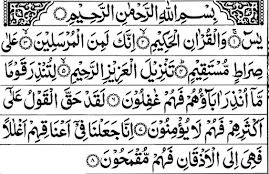 بِسْمِ اللّٰهِ الرَّحْمٰنِ الرَّحِيْمِ
يٰسٓ ۝١ وَالْقُرْاٰنِ الْحَكِيْمِ ۝٢ اِنَّكَ لَمِنَ الْمُرْسَلِيْنَ ۝٣ عَلٰى
صِرَاطٍ مُّسْتَقِيْمٍ ۝٤ تَنْزِيْلَ الْعَزِيْزِ الرَّحِيْمِ ۝٥ لِتُنْذِرَ قَوْمًا
مَّاۤ اُنْذِرَ اٰبَآؤُهُمْ فَهُمْ غٰفِلُوْنَ ۝٦ لَقَدْ حَقَّ الْقَوْلُ عَلٰۤى
اَكْثَرِهِمْ فَهُمْ لَا يُؤْمِنُوْنَ ۝٧ اِنَّا جَعَلْنَا فِيْۤ اَعْنَاقِهِمْ اَغْلٰلًا
فَهِيَ اِلَى الْاَذْقَانِ فَهُمْ مُّقْمَحُوْنَ ۝٨